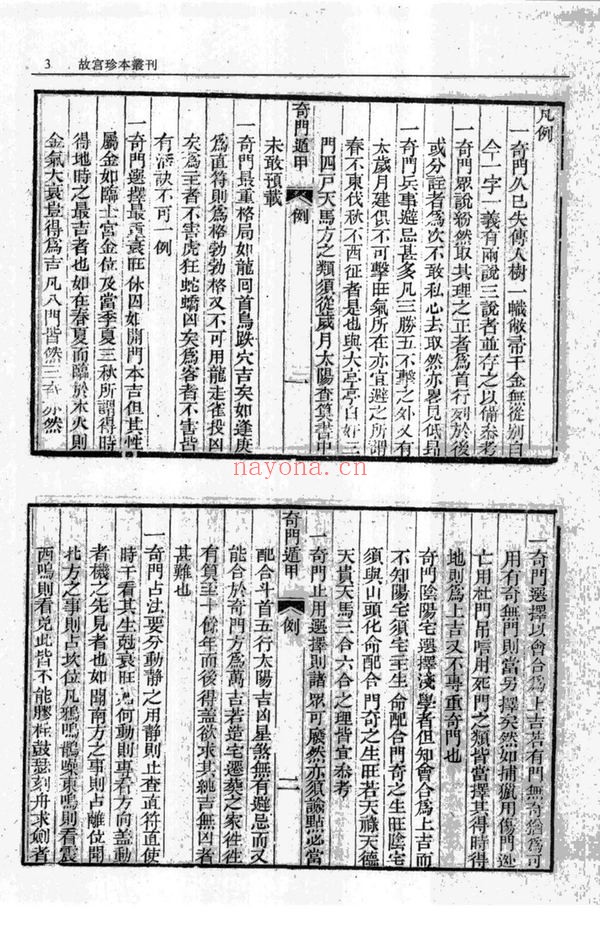 3 故宮珍本叢刊
凡例
一奇門久已失傳人樹一幟敝帚千金無從別白
今一字一義有兩說三說者並存之以備叅考
一奇門眾說紛然取其理之正者爲首行刻於後
或分註者爲次不敢私心去取然亦畧見低昻
一奇門兵事避忌甚多凡三勝五不擊之外又有
太歲月建俱不可擊旺氣所在亦宜避之所謂
春不東伐秋不西征者是也與大亭亭白奸三
門四戸天馬方之類須從歲月太陽查算書中
未敢預載
奇門遁甲 凡例 二
一奇門最重格局如龍囘首鳥跌穴吉矣如逢庚
爲直符則爲格勃勃格又不可用龍走雀投凶
矣爲主者不害虎狂蛇蟜凶矣爲客者不害皆
有活訣不可一例
一奇門選擇最重衰旺休囚如開門本吉但其性
屬金如臨土宮金位及當季夏三秋所謂得時
得地時之最吉者也如在春夏而臨於木火則
金氣大衰豈得爲吉凡八門皆然三奇亦然
一奇門選擇以會合爲上吉若有門無奇猶爲可
用有奇無門則當另擇矣然如捕獵用傷門逃
亡用杜門弔唁用死門之類皆當擇其得時得
地則爲上吉又不專重奇門也
奇門陰陽宅選擇淺學者但知會合爲上吉而
不知陽宅須宅主生命配合門奇之生旺陰宅
須與山頭化命配合門奇之生旺若天祿天德
天貴天馬三合六合之理皆宜叅考
一奇門止用選擇則諸眾可廢然亦須諭點必當
奇門遁甲 凡例 二
配合斗首五行太陽吉凶星煞無有避忌而又
能合於奇門方爲萬吉若造宅遷葬之家徃徃
有算至十餘年而後得蓋欲求其純吉無凶者
甚難也
一奇門占法要分動靜之用靜則止查直符直使
時干看其生剋衰旺如何動則專看方向蓋動
者機之先見者也如聞南方之事則占離位聞
北方之事則占坎位凡鴉鳴鵲噪東鳴則看震
西鳴則看兌此皆不能膠柱鼓瑟刻舟求劍者
nayona.cn